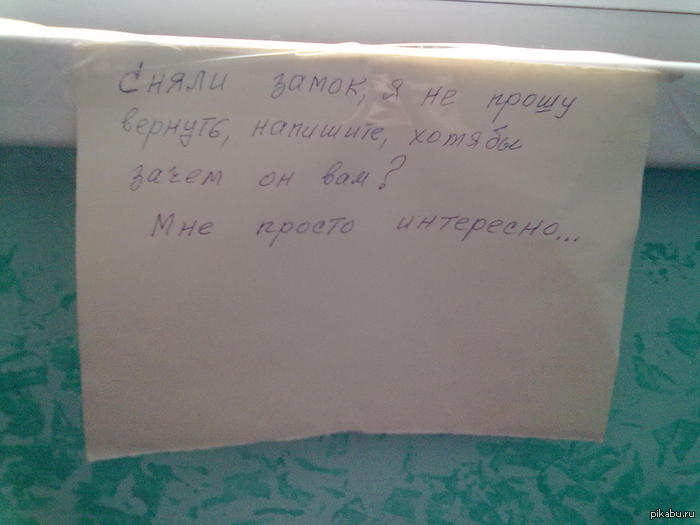 Сняли замок, я не прошу
вернуть, напишите, хотябы
зачем он вам?
Мне просто интересно...
pikabu.ru